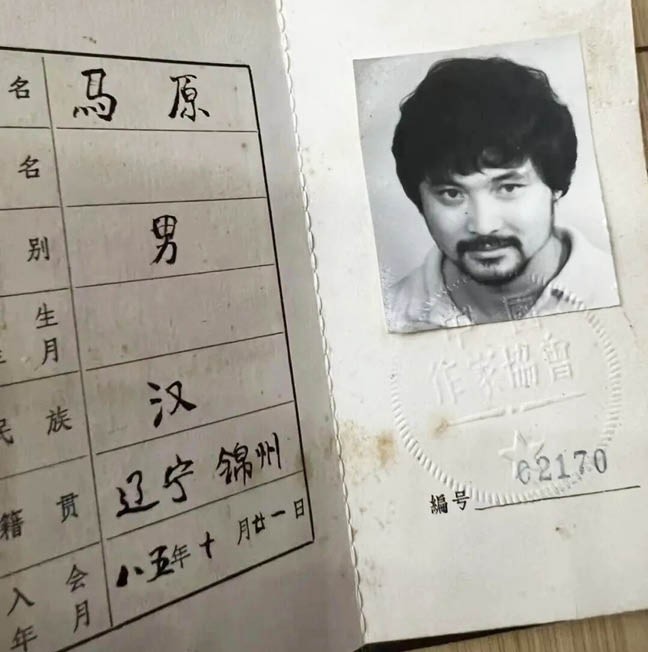 名 馬 原
名
别 男
生
年 月
民 族 汉
籍 贯 辽宁 锦州
入 会 八五年十月廿一日
年 月
中国
作家協會
編号 02170